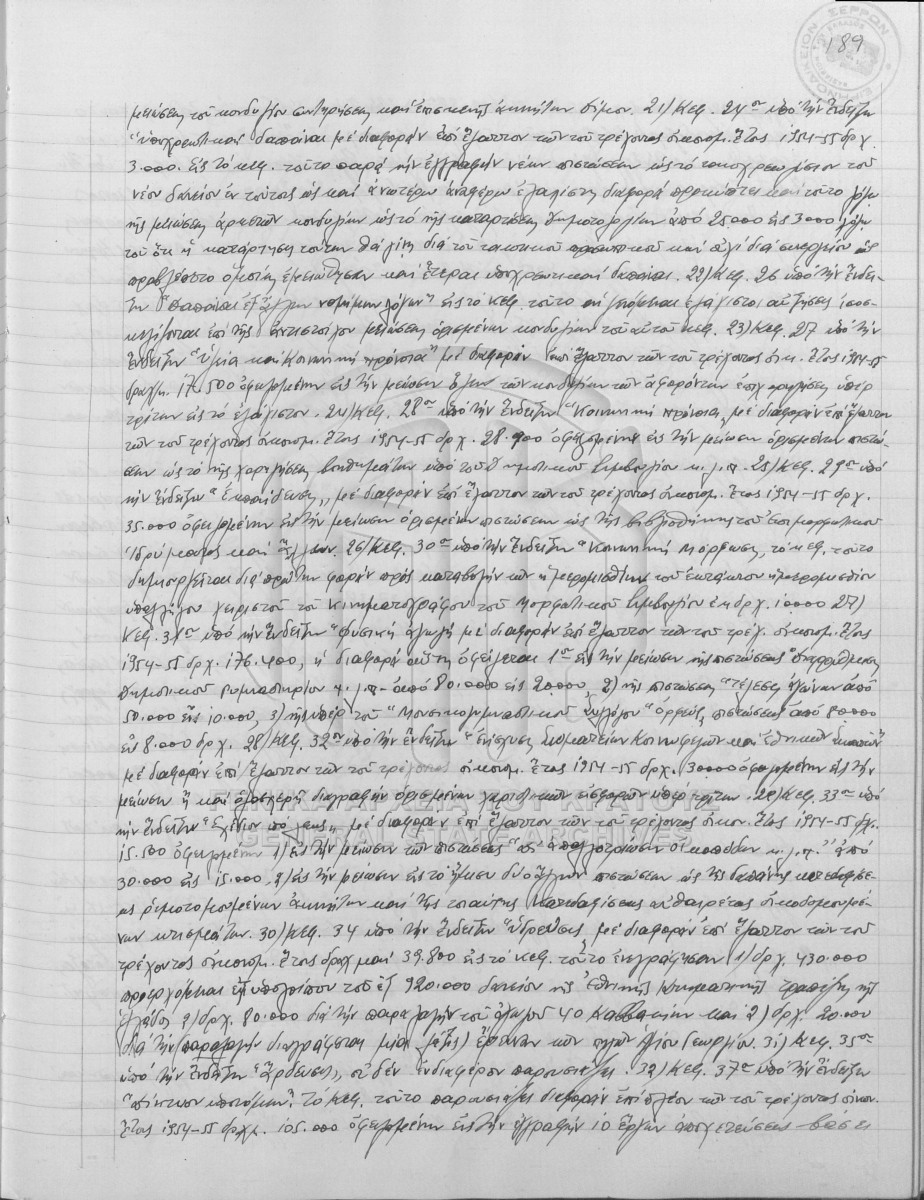 189
μειώσεις τοῦ κονδυλίου συντηρήσεως καὶ ἐπισκευῆς ἀκινήτων δήμου. 21) Κεφ. 24ον ὑπὸ τὴν ἔνδειξιν
"ὑποχρεωτικαὶ δαπάναι μὲ διαφορὰν ἐπὶ ἔλαττον τῶν τοῦ τρέχοντος οἰκονομ. ἔτους 1954-55 δρχ.
3.000 εἰς τὸ κεφ. τοῦτο παρὰ τὴν ἐγγραφὴν νέων πιστώσεων ὡς τὸ τοκοχρεωλύσιον τοῦ
νέου δανείου ἐν τούτοις ὡς καὶ ἀνωτέρω ἀναφέρω ἐλαχίστη διαφορὰ προκύπτει καὶ τοῦτο λόγῳ
τῆς μειώσεως ἀρκετῶν κονδυλίων ὡς τὸ τῆς καταρτίσεως δημοτολογίων ἀπὸ 25.000 εἰς 3.000 λόγῳ
τοῦ ὅτι ἡ κατάρτησις τούτων θὰ γίνῃ διὰ τοῦ τακτικοῦ προσωπικοῦ καὶ οὐχὶ διὰ συνεργείου ὡς
προεβλέπετο ὁμοίως ἐμειώθησαν καὶ ἕτεραι ὑποχρεωτικαὶ δαπάναι. 22) Κεφ. 26 ὑπὸ τὴν ἔνδει-
ξιν "δαπάναι ἐξ ἄλλων νομίμων λόγων" εἰς τὸ κεφ. τοῦτο αἱ ἐλάχιστοι αὐξήσεις ἰσοσ-
κελίζονται ἐπὶ τῆς ἀντιστοίχου μειώσεως ὁρισμένων κονδυλίων τοῦ αὐτοῦ κεφ. 23) Κεφ. 27 ὑπὸ τὴν
ἔνδειξιν "ὑγεία καὶ Κοινωνικὴ πρόνοια" μὲ διαφορὰν ἐπὶ ἔλαττον τῶν τοῦ τρέχοντος οἰκ. ἔτους 1954-55
δραχμ. 17.500 ὀφειλομένην εἰς τὴν μείωσιν ὅλων τῶν κονδυλίων τῶν ἀφορώντων ἐπιχορηγήσεις ὑπὲρ
τρίτων εἰς τὸ ἐλάχιστον. 24) Κεφ. 28ον ὑπὸ τὴν ἔνδειξιν "Κοινωνικὴ πρόνοια" μὲ διαφορὰν ἐπὶ ἔλαττον
τῶν τοῦ τρέχοντος οἰκονομ. ἔτους 1954-55 δρχ. 28.900 ὀφειλομένης εἰς τὴν μείωσιν ὁρισμένων πιστώ-
σεων ὡς τὸ τῆς χορηγήσεως βοηθημάτων ὑπὸ τοῦ Δημοτικοῦ Συμβουλίου κ.λ.π. 25) Κεφ. 29ον ὑπὸ
τὴν ἔνδειξιν "Ἐκπαίδευσις" μὲ διαφορὰν ἐπὶ ἔλαττον τῶν τοῦ τρέχοντος οἰκονομ. ἔτους 1954-55 δρχ.
35.000 ὀφειλομένην εἰς τὴν μείωσιν ὁρισμένων πιστώσεων ὡς τῆς βιβλιοθήκης τοῦ ἐπιμορφωτικοῦ
Ἱδρύματος καὶ ἄλλων. 26) Κεφ. 30ον ὑπὸ τὴν ἔνδειξιν "Κοινωνικὴ Μόρφωσις, τὸ κεφ. τοῦτο
δημιουργεῖται διὰ πρώτην φορὰν πρὸς καταβολὴν τῶν ἡμερομισθίων τοῦ ἐκτάκτου ἡμερομισθίου
ὑπαλλήλου χειριστοῦ τοῦ Κινηματογράφου τοῦ Μορφωτικοῦ Συμβουλίου ἐκ δρχ. 10.000 27)
Κεφ. 31ον ὑπὸ τὴν ἔνδειξιν "φυσικὴ ἀγωγὴ μὲ διαφορὰν ἐπὶ ἔλαττον τῶν τοῦ τρέχ. οἰκονομ. ἔτους
1954-55 δρχ. 176.400, ἡ διαφορὰ αὕτη ὀφείλεται 1ον εἰς τὴν μείωσιν τῆς πιστώσεως διαρρύθμισις
Δημοτικοῦ Γυμναστηρίου κ.λ.π. ἀπὸ 80.000 εἰς 20000, 2) τῆς πιστώσεως "τέλεσις ἀγώνων ἀπὸ
50.000 εἰς 10.000, 3) τῆς ὑπὲρ τοῦ "Μουσικογυμναστικοῦ Συλλόγου "Ὀρφεύς, πιστώσεως ἀπὸ 80000
εἰς 8.000 δρχ. 28) Κεφ. 32ον ὑπὸ τὴν ἔνδειξιν "ἐνίσχυσις Σωματείων Κοινωφελῶν καὶ Ἐθνικῶν σκοπῶν"
μὲ διαφορὰν ἐπὶ ἔλαττον τῶν τοῦ τρέχοντος οἰκονομ. ἔτους 1954-55 δρχ. 30000 ὀφειλομένην εἰς τὴν
μείωσιν ἢ καὶ ὁλοσχερῆ διαγραφὴν ὁρισμένων χαριστικῶν εἰσφορῶν ὑπὲρ τρίτων. 29) Κεφ. 33ον ὑπὸ
τὴν ἔνδειξιν "Σχέδιον πόλεως" μὲ διαφορὰν ἐπὶ ἔλαττον τῶν τοῦ τρέχοντος οἰκον. ἔτους 1954-55 δρχ.
15.500 ὀφειλομένην 1) εἰς τὴν μείωσιν τῶν πιστώσεων ἀπαλλοτρίωσιν οἰκοπέδων κ.λ.π." ἀπὸ
30.000 εἰς 15.000, 2) εἰς τὴν μείωσιν εἰς τὸ ἥμισυ δύο ἄλλων πιστώσεων ὡς τῆς δαπάνης κατεδαφίσε-
ως ρυμοτομουμένων ἀκινήτων καὶ τῆς τοιαύτης κατεδαφίσεως αὐθαιρέτως οἰκοδομουμέ-
νων κτισμάτων. 30) Κεφ. 34 ὑπὸ τὴν ἔνδειξιν "ὕδρευσις μὲ διαφορὰν ἐπὶ ἔλαττον τῶν τοῦ
τρέχοντος οἰκονομ. ἔτους δραχμαὶ 39.800 εἰς τὸ κεφ. τοῦτο ἐνεγράφησαν 1) δρχ. 430.000
προερχόμεναι ἐξ ὑπολοίπου τοῦ ἐξ 920.000 δανείου τῆς Ἐθνικῆς Κτηματικῆς τραπέζης τῆς
Ἑλλάδος 2) δρχ. 80.000 διὰ τὴν παραλλαγὴν τοῦ ἀγωγοῦ 40 Καββακίων καὶ 2) δρχ. 20.000
διὰ τὴν (παραλλαγὴν διαγράφεται μία λέξις) ἔρευναν τῶν πηγῶν Ἁγίου Γεωργίου. 31) Κεφ. 35ον
ὑπὸ τὴν ἔνδειξιν "Ἄρδευσις", οὐδὲν ἐνδιαφέρον παρουσιάζει. 32) Κεφ. 37ον ὑπὸ τὴν ἔνδειξιν
"δίκτυον ὑπονόμων". Τὸ κεφ. τοῦτο παρουσιάζει διαφορὰν ἐπὶ πλέον τῶν τοῦ τρέχοντος οἰκον.
ἔτους 1954-55 δρχμ. 105.000 ὀφειλομένην εἰς τὴν ἐγγραφὴν 10 ἔργων ἀποχετεύσεως βάσει
ΓΕΝΙΚΑ ΑΡΧΕΙΑ ΤΟΥ ΚΡΑΤΟΥΣ
GENERAL STATE ARCHIVES